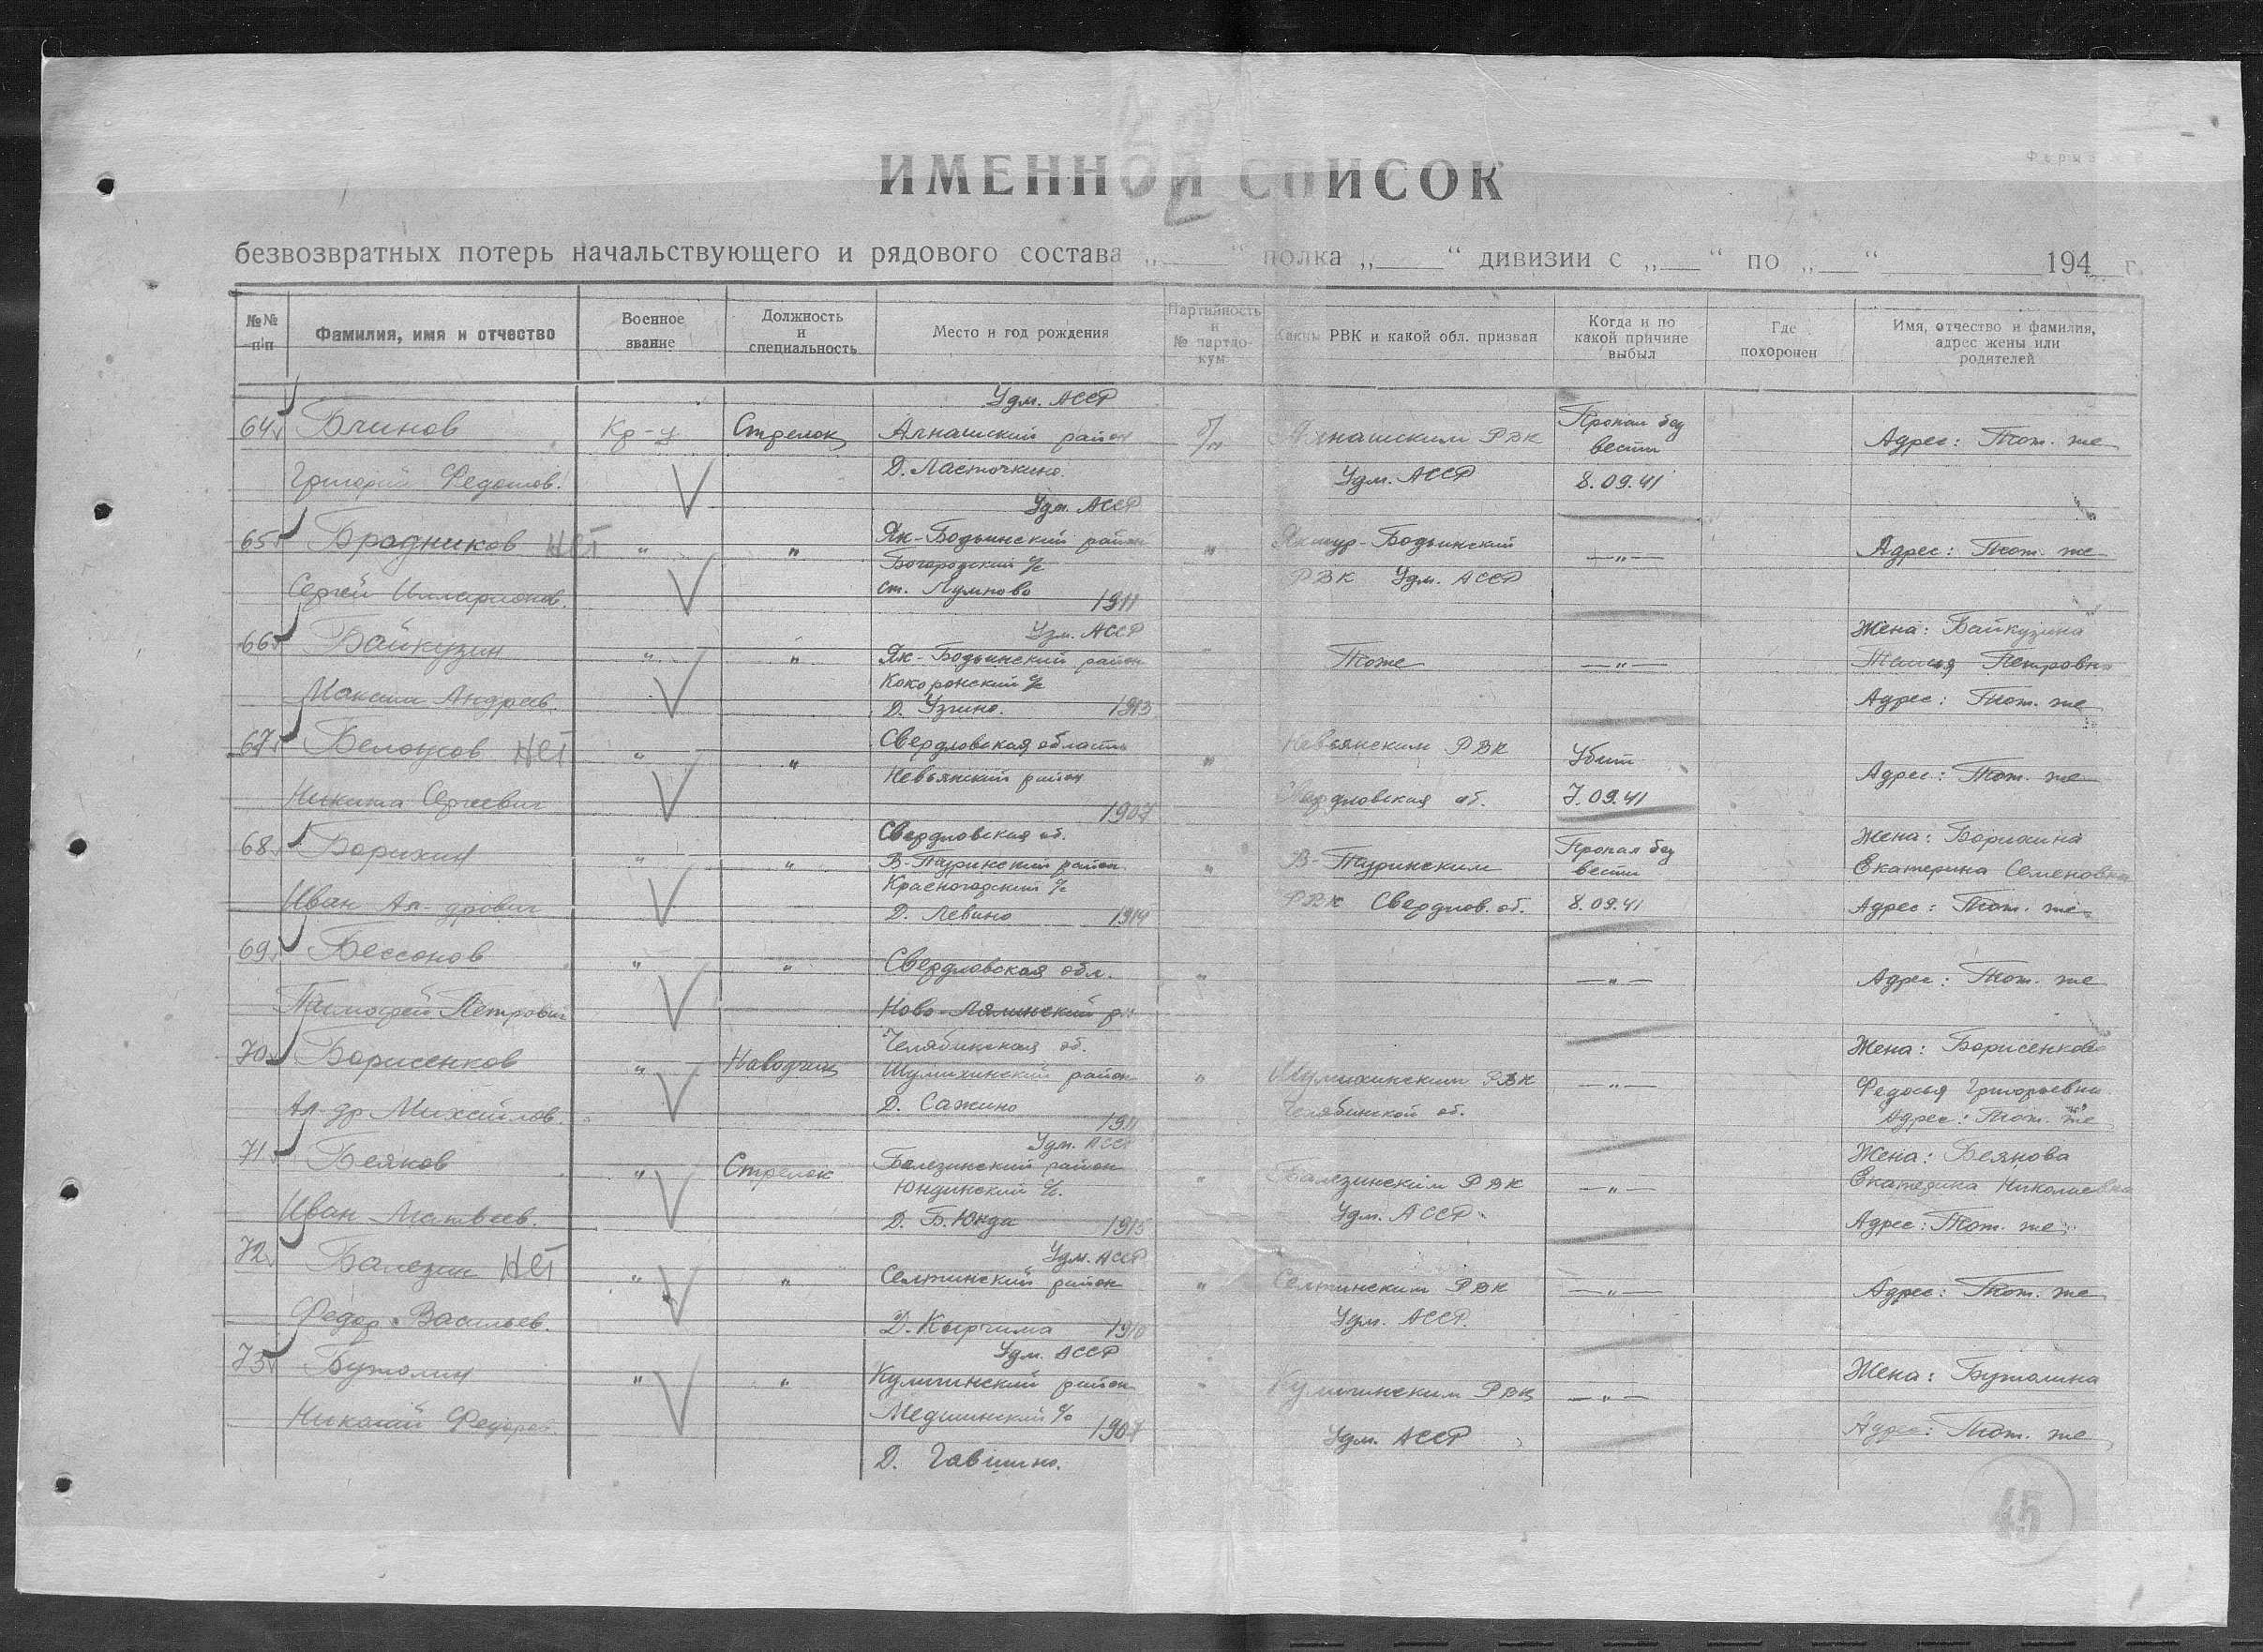 ИМЕННОЙ СПИСОК
безвозвратных потерь начальствующего и рядового состава „ “ полка „ “ дивизии с „ “ по „ “ 194 г.
№№ п/п
Фамилия, имя и отчество
Военное звание
Должность и специальность
Место и год рождения
Партийность и № партдокум.
Каким РВК и какой обл. призван
Когда и по какой причине выбыл
Где похоронен
Имя, отчество и фамилия, адрес жены или родителей
Удм. АССР
64 Блинов Кр-ц Стрелок Алнашский район б/п Алнашским РВК Пропал без вести Адрес: Там же
Григорий Федотов. Д. Ласточкино Удм. АССР 8.09.41
Удм. АССР
65 Бродников НЕТ " " Як-Бодьинский район " Якшур-Бодьинский —"— Адрес: Там же
Богородский с/с
Сергей Илларионов. ст. Лумпово 1911 РВК Удм. АССР
Удм. АССР Жена: Байкузина
66 Байкузин " " Як-Бодьинский район " Тоже —"— Петровна
Кокоронский с/с
Максим Андреев. Д. Узгино. 1913 Адрес: Там же
67 Белоусов НЕТ " " Свердловская область " Невьянским РВК Убит
Невьянский район Адрес: Там же
Никита Сергеевич 1907 Свердловская об. 7.09.41
Свердловская об. Жена: Борихина
68 Борихин " " В-Тавринский район " В-Тавринским Пропал без вести Екатерина Семеновна
Красногорский с/с
Иван Ал-дрович Д. Левино 1914 РВК Свердлов. об. 8.09.41 Адрес: Там же
69 Бессонов " " Свердловская обл. " —"— Адрес: Там же
Тимофей Петрович Ново-Лялинский р-н
Челябинская об. Жена: Борисенкова
70 Борисенков " Наводчик Шумихинский район " Шумихинским РВК —"— Федосья Григорьевна
Ал-др Михайлов. Д. Сажино 1911 Челябинской об. Адрес: Там же
Удм. АССР Жена: Беянова
71 " Стрелок Балезинский район " Балезинским РВК —"— Екатерина Николаевна
Юндинский с/с.
Иван Матвеев. Д. Б. Юнда 1915 Удм. АССР Адрес: Там же
Удм. АССР
72 Балезин НЕТ " " Селтинский район " Селтинским РВК —"— Адрес: Там же
Федор Васильев. Д. Кырчима 1910 Удм. АССР.
Удм. АССР
73 Бутолин " " Кулигинский район " Кулигинским РВК —"— Жена: Бутолина
Николай Федоров. с/с 1907 Удм. АССР Адрес: Там же
Д.
45